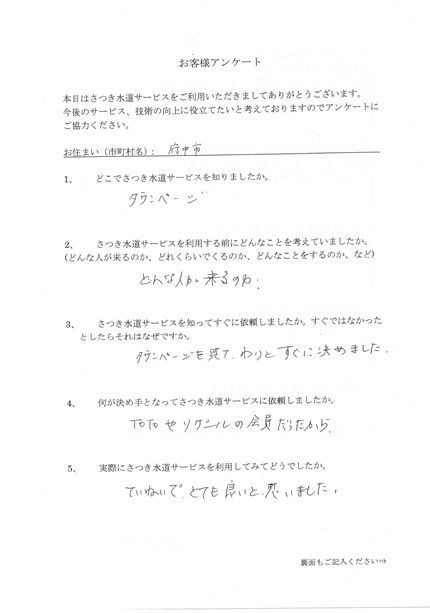 お客様アンケート
本日はさつき水道サービスをご利用いただきましてありがとうございます。
今後のサービス、技術の向上に役立てたいと考えておりますのでアンケートに
ご協力ください。
お住まい(市町村名): 府中市
1、 どこでさつき水道サービスを知りましたか。
タウンページ
2、 さつき水道サービスを利用する前にどんなことを考えていましたか。
(どんな人が来るのか、どれくらいでくるのか、どんなことをするのか、など)
どんな人が来るのか、
3、 さつき水道サービスを知ってすぐに依頼しましたか。すぐではなかった
としたらそれはなぜですか。
タウンページを見て、わりとすぐに決めました。
4、 何が決め手となってさつき水道サービスに依頼しましたか。
TOTOやリクシルの会員だったから。
5、 実際にさつき水道サービスを利用してみてどうでしたか。
ていねいで、とても良いと思いました。
裏面もご記入ください⇒